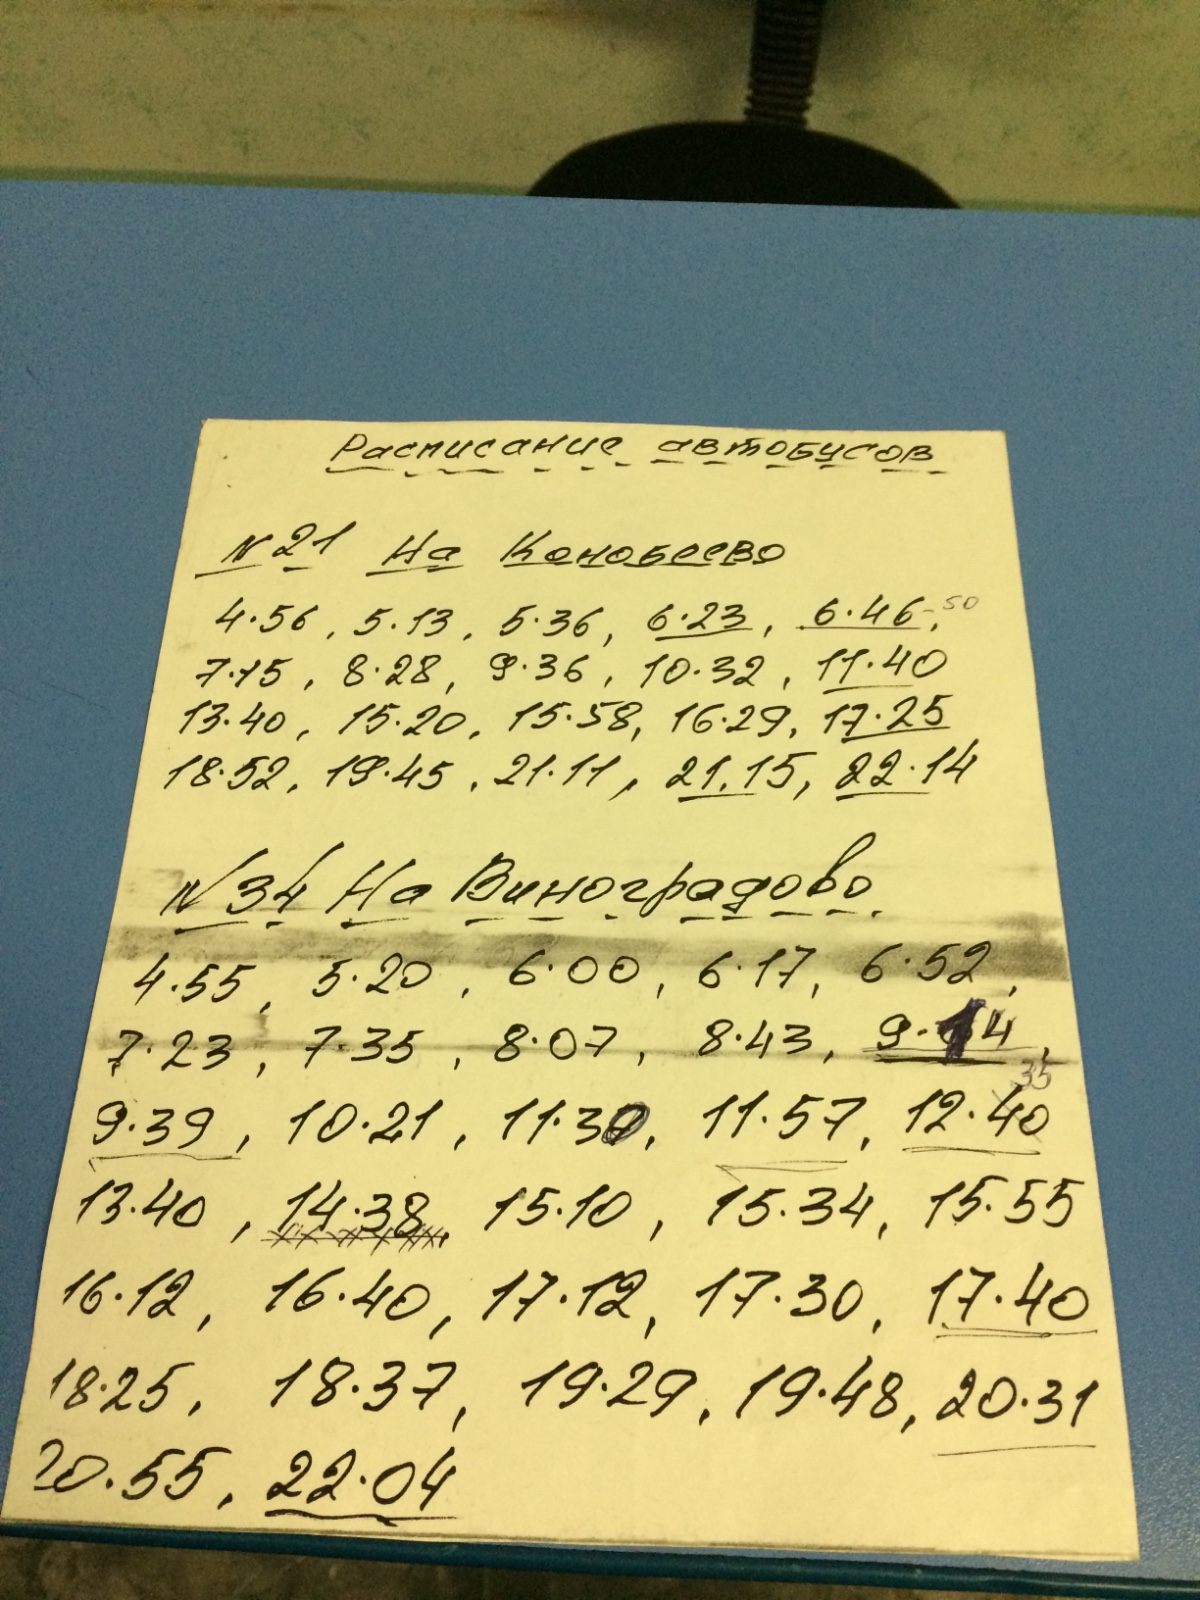 Расписание автобусов
N21 На Конобеево
4.56, 5.13, 5.36, 6.23, 6.46, -50
7.15, 8.28, 9.36, 10.32, 11.40
13.40, 15.20, 15.58, 16.29, 17.25
18.52, 19.45, 21.11, 21.15, 22.14
N34 На Виноградово.
4.55, 5.20, 6.00, 6.17, 6.52,
7.23, 7.35, 8.07, 8.43, 9.14,
35
9.39, 10.21, 11.30, 11.57, 12.40
13.40, 14.38, 15.10, 15.34, 15.55
16.12, 16.40, 17.12, 17.30, 17.40
18.25, 18.37, 19.29, 19.48, 20.31
20.55, 22.04